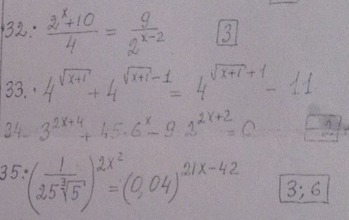 32. (2^x+10)/4 = 9/2^(x-2) 3
33. 4^√(x+1) + 4^(√(x+1)-1) = 4^(√(x+1)+1) - 11
34. 3^(2x+4) + 45·6^x - 9 2^(2x+2) = 0
35. (1/(25∛5))^(2x²) = (0,04)^(21x-42) 3; 6